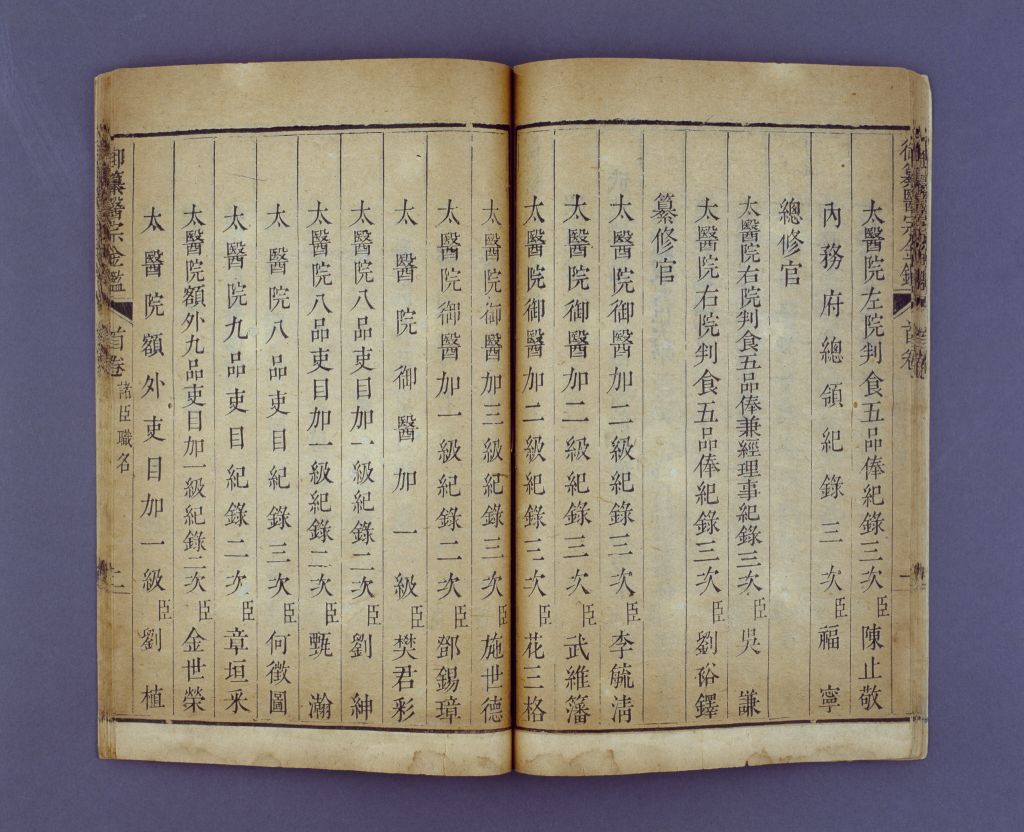 太醫院左院判食五品俸紀錄三次臣陳止敬
內務府總領紀錄三次臣福寧
總修官
太醫院右院判食五品俸兼經理事紀錄三次臣吳謙
太醫院右院判食五品俸紀錄三次臣劉裕鐸
纂修官
太醫院御醫加二級紀錄三次臣李毓清
太醫院御醫加二級紀錄三次臣武維藩
太醫院御醫加二級紀錄三次臣花三格
太醫院御醫加三級紀錄三次臣施世德
太醫院御醫加一級紀錄二次臣鄧錫璋
太醫院御醫加一級臣樊君彩
太醫院八品吏目加一級紀錄二次臣劉紳
太醫院八品吏目加一級紀錄二次臣甄瀚
太醫院八品吏目紀錄三次臣何徵圖
太醫院九品吏目紀錄二次臣章垣采
太醫院額外九品吏目加一級紀錄二次臣金世榮
太醫院額外吏目加一級臣劉植
御纂醫宗金鑑 首卷 諸臣職名 二